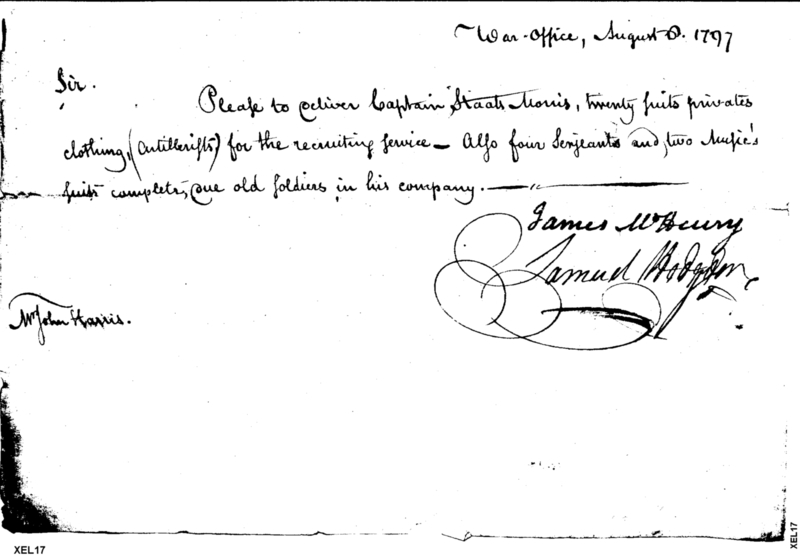 War-Office, August 8. 1797
Sir.
Please to deliver Captain Staats Morris, twenty suits privates
clothing, (Artillerists) for the recruiting service — Also four Serjeants and two Music's
suits complete, due old soldiers in his company. —
James McHenry
Samuel Hodgdon
Mr John Harris.
XEL17
XEL17